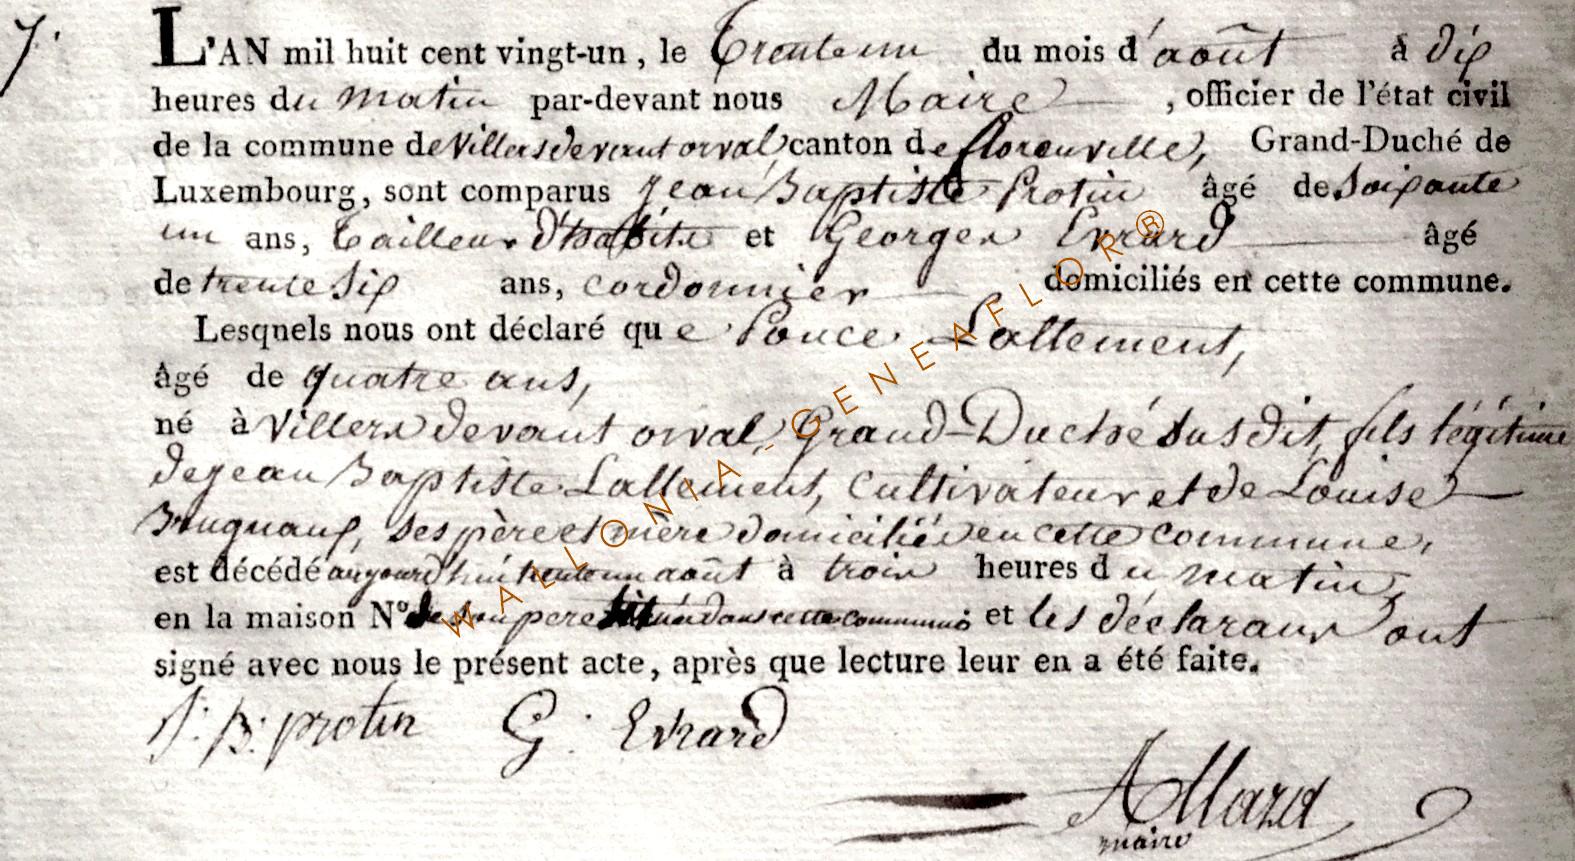 7.
L'AN mil huit cent vingt-un, le trente un du mois d'août à dix
heures du matin par-devant nous Maire, officier de l'état civil
de la commune de Villers devant orval canton de florenville, Grand-Duché de
Luxembourg, sont comparus Jean Baptiste Protin âgé de soixante
un ans, tailleur d'habits et Georges Evrard âgé
de trente six ans, cordonnier domiciliés en cette commune.
Lesqnels nous ont déclaré que Ponce Lallement,
âgé de quatre ans,
né à Villers devant orval, Grand-Duché susdit, fils légitime
de jean Baptiste Lallement, Cultivateur et de Louise
ses père et mère domiciliés en cette commune,
est décédé aujourd'hui trente un août à trois heures du matin,
en la maison N° de son pere située dans cette commune et les déclarans ont
signé avec nous le présent acte, après que lecture leur en a été faite.
J: B: protin G: Evrard
AMard
maire
WALLONIA-GENEAFLOR®